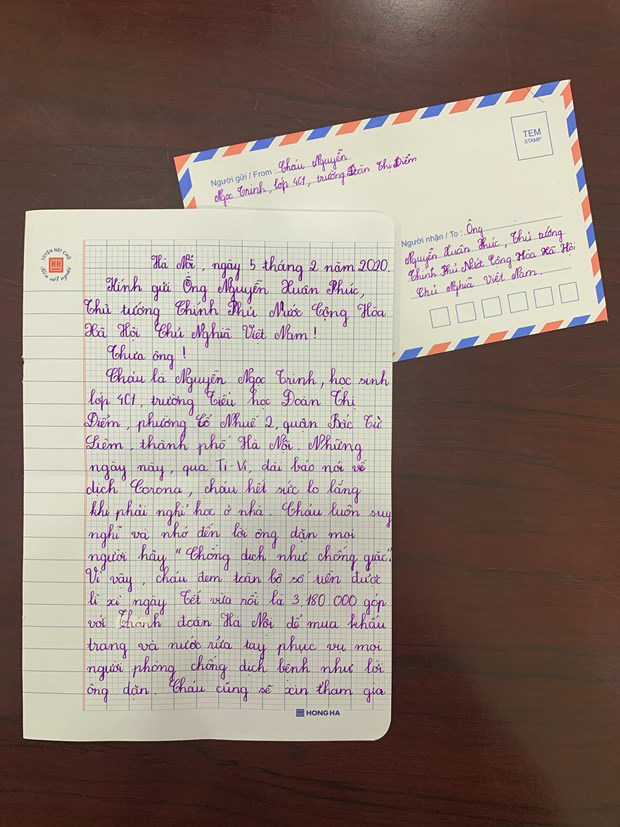 TEM
STAMP
Người gửi / From : Cháu Nguyễn
Ngọc Trinh, lớp 4G1, trường Đoàn Thị Điểm
Người nhận / To : Ông
Nguyễn Xuân Phúc, Thủ tướng
Chính Phủ Nước Cộng Hòa Xã Hội
Chủ Nghĩa Việt Nam
Hà Nội, ngày 5 tháng 2 năm 2020.
Kính gửi Ông Nguyễn Xuân Phúc,
Thủ tướng Chính Phủ Nước Cộng Hòa
Xã Hội Chủ Nghĩa Việt Nam !
Thưa ông !
Cháu là Nguyễn Ngọc Trinh, học sinh
lớp 4G1, trường Tiểu học Đoàn Thị
Điểm, phường Cổ Nhuế 2, quận Bắc Từ
Liêm, thành phố Hà Nội. Những
ngày này, qua Ti-Vi, đài báo nói về
dịch Corona, cháu hết sức lo lắng
khi phải nghỉ học ở nhà. Cháu luôn suy
nghĩ và nhớ đến lời ông dặn mọi
người hãy "Chống dịch như chống giặc".
Vì vậy, cháu đem toàn bộ số tiền được
lì xì ngày Tết vừa rồi là 3.180.000 góp
với Thành đoàn Hà Nội để mua khẩu
trang và nước rửa tay phục vụ mọi
người phòng chống dịch bệnh như lời
ông dặn. Cháu cũng sẽ xin tham gia
HONG HA